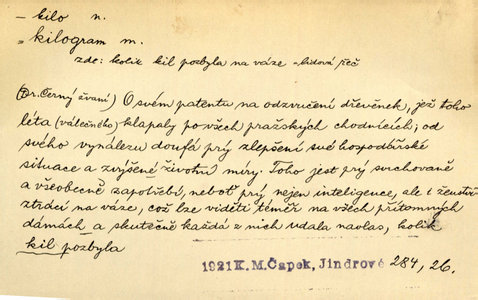 – kilo n.
„ kilogram m.
zde: kolik kil pozbyla na váze – lidová řeč
(Dr. Černý žvaní) O svém patentu na odzvučení dřevěnek, jež toho
léta (válečného) klapaly po všech pražských chodnících; od
svého vynálezu doufá prý zlepšení své hospodářské
situace a zvýšené životní míry. Toho jest prý svrchovaně
a všeobecně zapotřebí, neboť prý nejen inteligence, ale i ženstvo
ztrácí na váze, což lze viděti téměř na všech přítomných
dámách a skutečně každá z nich udala navlas, kolik
kil pozbyla
1921 K. M. Čapek, Jindrové 284, 26.